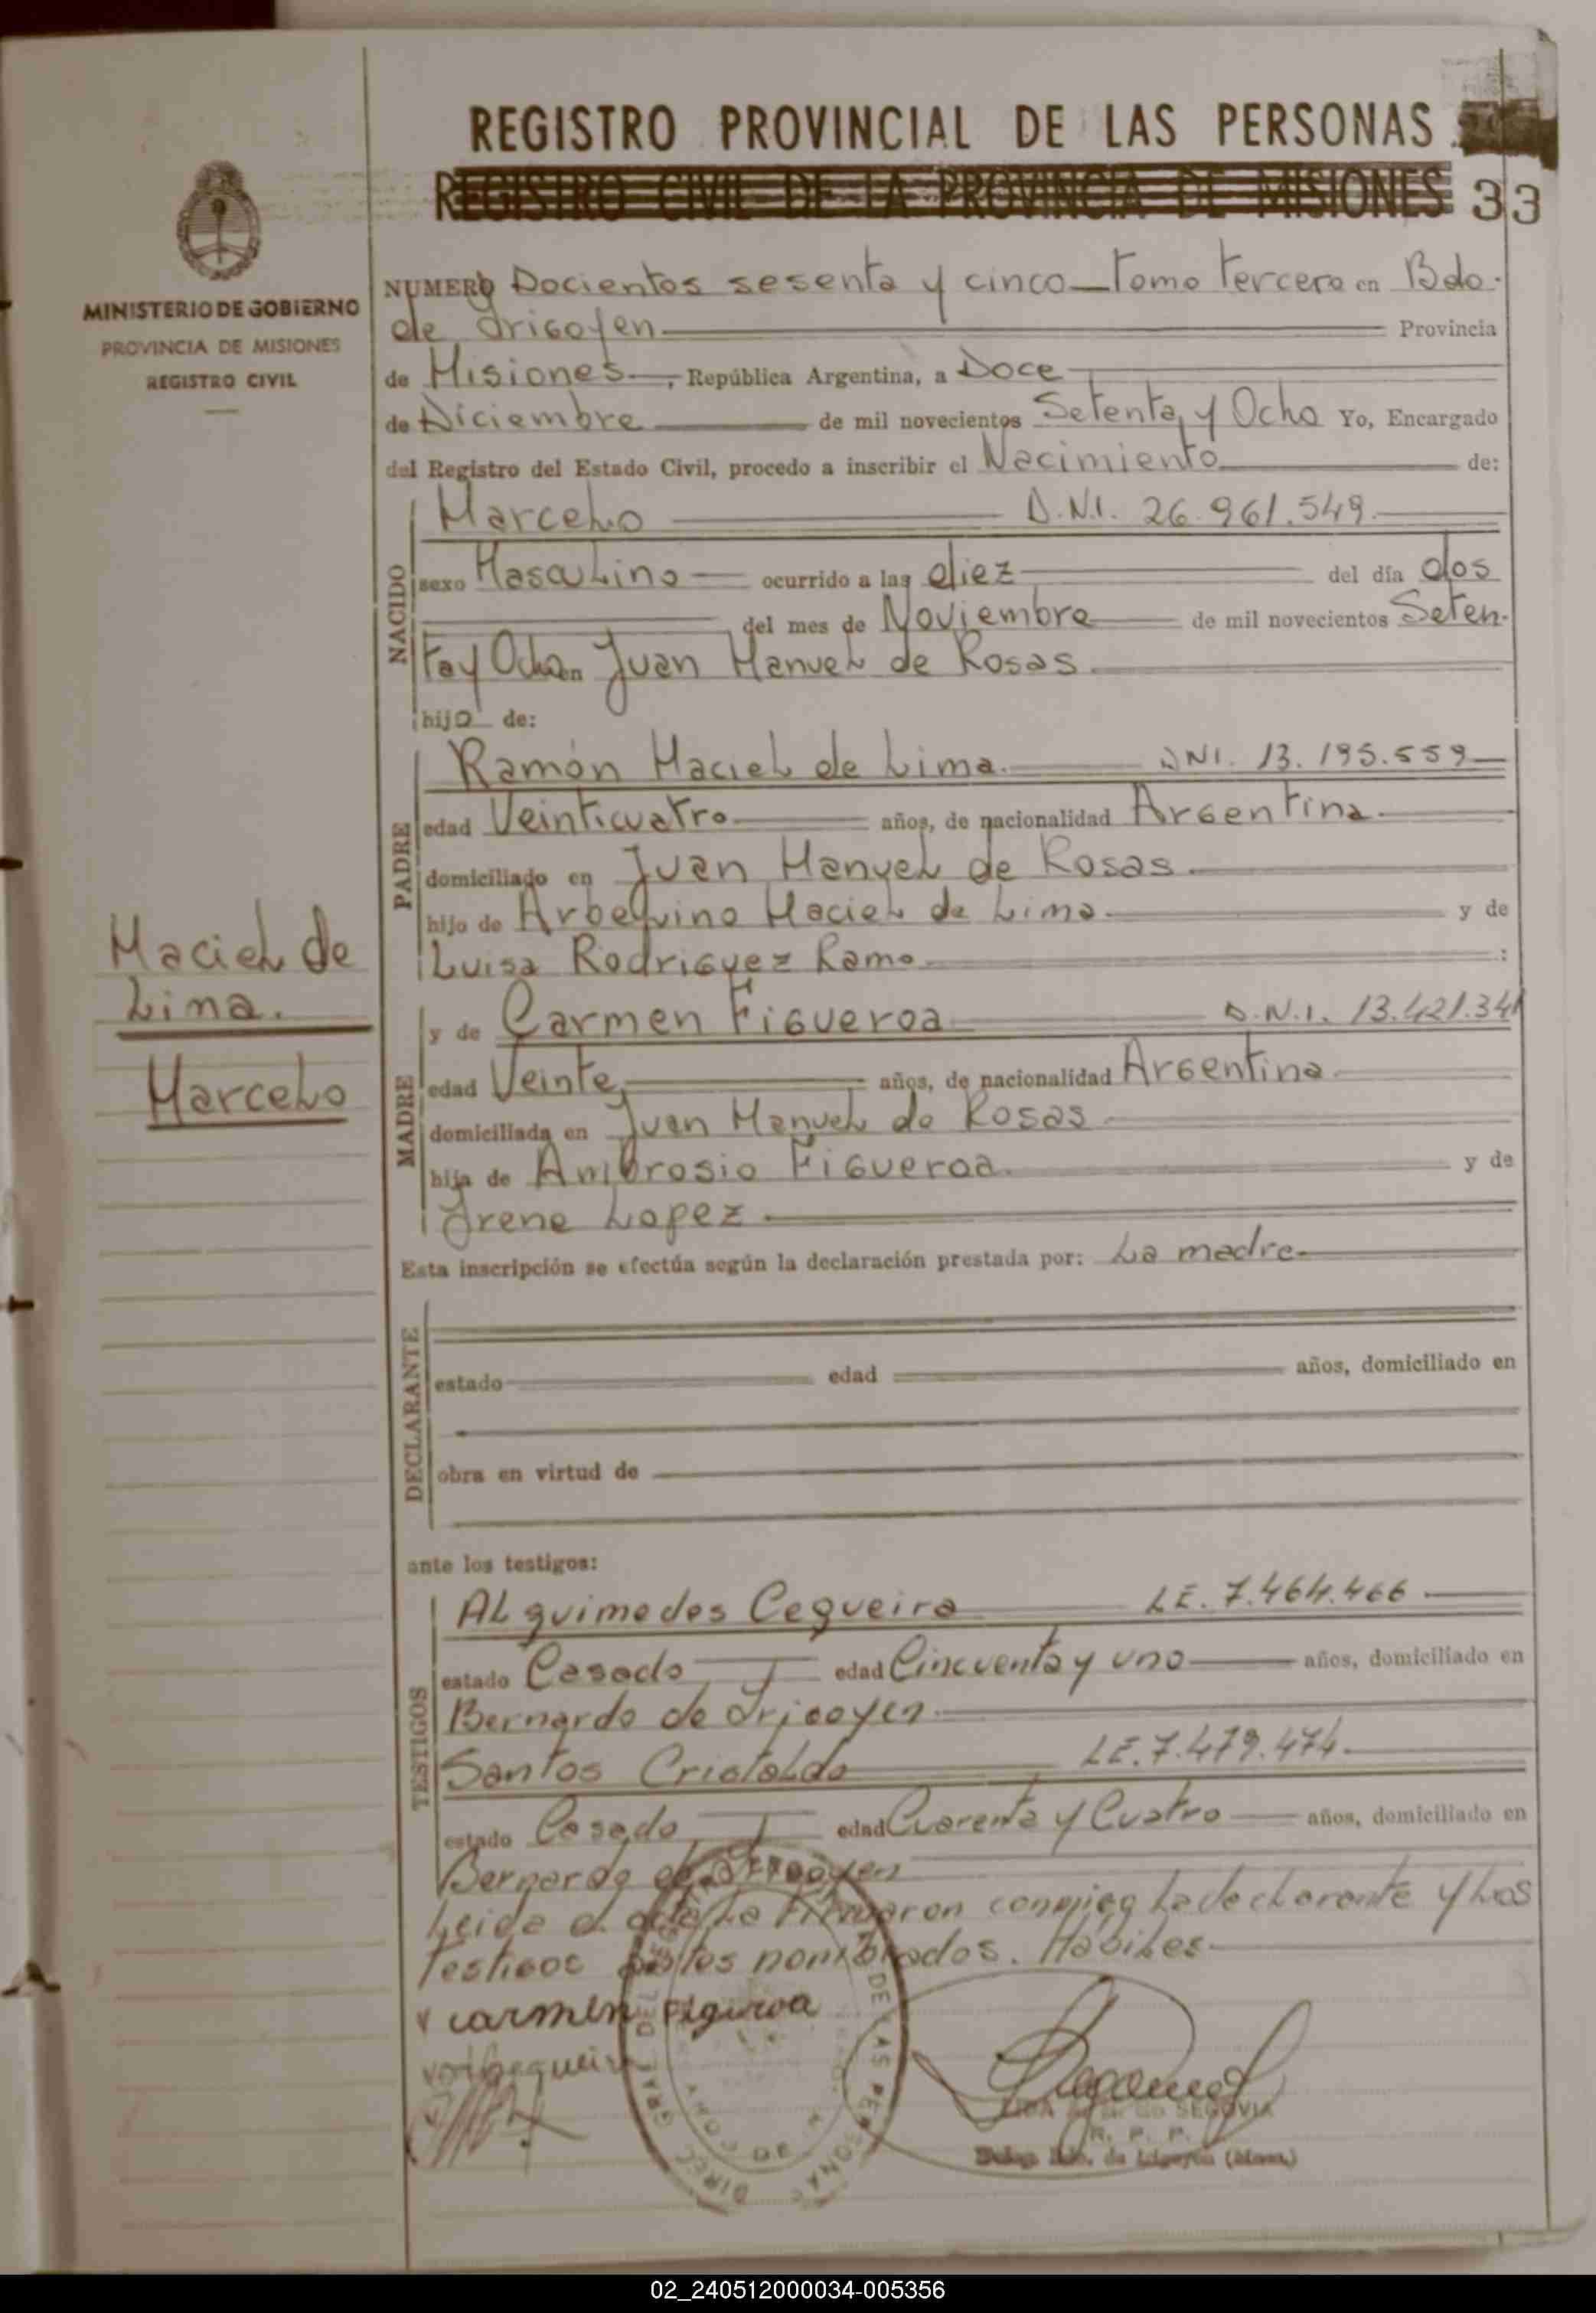 REGISTRO PROVINCIAL DE LAS PERSONAS
REGISTRO CIVIL DE LA PROVINCIA DE MISIONES 33
MINISTERIO DE GOBIERNO
PROVINCIA DE MISIONES
REGISTRO CIVIL
NUMERO Docientos sesenta y cinco — Tomo Tercero en Bdo.
de Irigoyen Provincia
de Misiones, República Argentina, a Doce
de Diciembre de mil novecientos Setenta y Ocho Yo, Encargado
del Registro del Estado Civil, procedo a inscribir el Nacimiento de:
NACIDO
Marcelo D.N.I. 26.961.549.
sexo Masculino ocurrido a las diez del día dos
del mes de Noviembre de mil novecientos Seten-
ta y Ocho en Juan Manuel de Rosas
hijo de:
PADRE
Ramón Maciel de Lima. DNI. 13.195.559
edad Veinticuatro años, de nacionalidad Argentina
domiciliado en Juan Manuel de Rosas
hijo de Arbequino Maciel de Lima. y de
Luisa Rodriguez Ramo :
Maciel de
Lima.
Marcelo
MADRE
y de Carmen Figueroa D.N.I. 13.421.341
edad Veinte años, de nacionalidad Argentina
domiciliada en Juan Manuel de Rosas
hija de Ambrosio Figueroa. y de
Irene Lopez
Esta inscripción se efectúa según la declaración prestada por: La madre
DECLARANTE
estado edad años, domiciliado en
obra en virtud de
ante los testigos:
TESTIGOS
Alquimedes Cequeira L.E. 7.464.466
estado Casado edad Cincuenta y uno años, domiciliado en
Bernardo de Irigoyen
Santos Cristaldo L.E. 7.479.474.
estado Casado edad Cuarenta y Cuatro años, domiciliado en
Bernardo de Irigoyen
Leida el acta La firmaron conmigo La declarante y Los
Testigos nombrados. Habiles
carmen Figuroa
DE LAS PERSONAS
SEGOVIA
R. P. P.
02_240512000034-005356